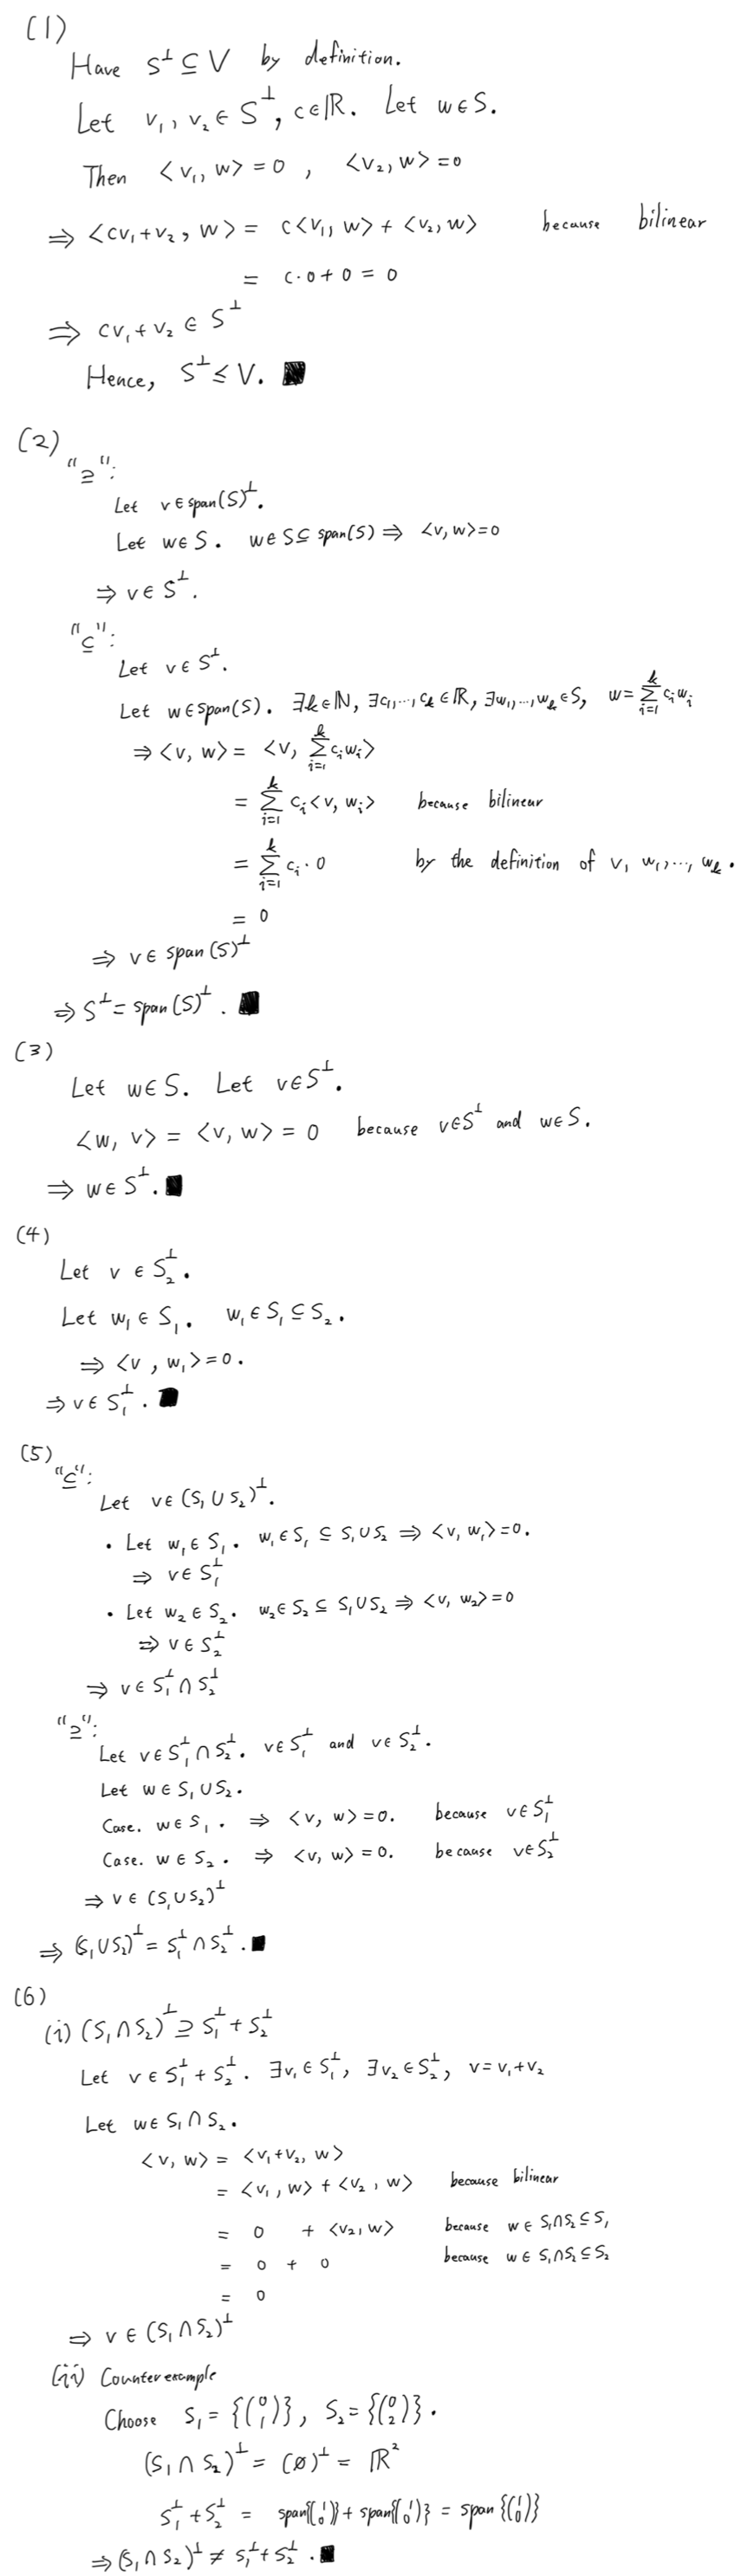 (1)
Have S^⊥ ⊆ V by definition.
Let v₁, v₂ ∈ S^⊥, c∈ℝ. Let w∈S.
Then <v₁, w> = 0 , <v₂, w> = 0
⇒ <cv₁+v₂, w> = c<v₁, w> + <v₂, w> because bilinear
= c·0+0 = 0
⇒ cv₁+v₂ ∈ S^⊥
Hence, S^⊥ ≤ V. ■
(2)
"⊇":
Let v∈span(S)^⊥.
Let w∈S. w∈S⊆span(S) ⇒ <v, w>=0
⇒ v∈S^⊥.
"⊆":
Let v∈S^⊥.
Let w∈span(S). ∃k∈ℕ, ∃c₁,…,c_k∈ℝ, ∃w₁,…,w_k∈S, w=∑_{i=1}^{k} c_i w_i
⇒ <v, w> = <v, ∑_{i=1}^{k} c_i w_i>
= ∑_{i=1}^{k} c_i <v, w_i> because bilinear
= ∑_{i=1}^{k} c_i · 0 by the definition of v, w₁,…, w_k.
= 0
⇒ v∈ span(S)^⊥
⇒ S^⊥ = span(S)^⊥. ■
(3)
Let w∈S. Let v∈S^⊥.
<w, v> = <v, w> = 0 because v∈S^⊥ and w∈S.
⇒ w∈S^⊥. ■
(4)
Let v ∈ S₂^⊥.
Let w₁ ∈ S₁. w₁∈S₁⊆S₂.
⇒ <v, w₁>=0.
⇒ v∈S₁^⊥. ■
(5)
"⊆":
Let v∈(S₁∪S₂)^⊥.
• Let w₁∈S₁. w₁∈S₁ ⊆ S₁∪S₂ ⇒ <v, w₁>=0.
⇒ v∈S₁^⊥
• Let w₂∈S₂. w₂∈S₂ ⊆ S₁∪S₂ ⇒ <v, w₂>=0
⇒ v∈S₂^⊥
⇒ v∈S₁^⊥∩S₂^⊥
"⊇":
Let v∈S₁^⊥∩S₂^⊥. v∈S₁^⊥ and v∈S₂^⊥.
Let w∈S₁∪S₂.
Case. w∈S₁. ⇒ <v, w>=0. because v∈S₁^⊥
Case. w∈S₂. ⇒ <v, w>=0. because v∈S₂^⊥
⇒ v∈(S₁∪S₂)^⊥
⇒ (S₁∪S₂)^⊥ = S₁^⊥∩S₂^⊥. ■
(6)
(i) (S₁∩S₂)^⊥ ⊇ S₁^⊥+S₂^⊥
Let v∈S₁^⊥+S₂^⊥. ∃v₁∈S₁^⊥, ∃v₂∈S₂^⊥, v=v₁+v₂
Let w∈S₁∩S₂.
<v, w> = <v₁+v₂, w>
= <v₁, w> + <v₂, w> because bilinear
= 0 + <v₂, w> because w∈S₁∩S₂⊆S₁
= 0 + 0 because w∈S₁∩S₂⊆S₂
= 0
⇒ v∈(S₁∩S₂)^⊥
(ii) Counterexample
Choose S₁ = {(0 1)}, S₂ = {(0 2)}.
(S₁∩S₂)^⊥ = (∅)^⊥ = ℝ²
S₁^⊥+S₂^⊥ = span{(1 0)} + span{(1 0)} = span{(1 0)}
⇒ (S₁∩S₂)^⊥ ≠ S₁^⊥+S₂^⊥. ■